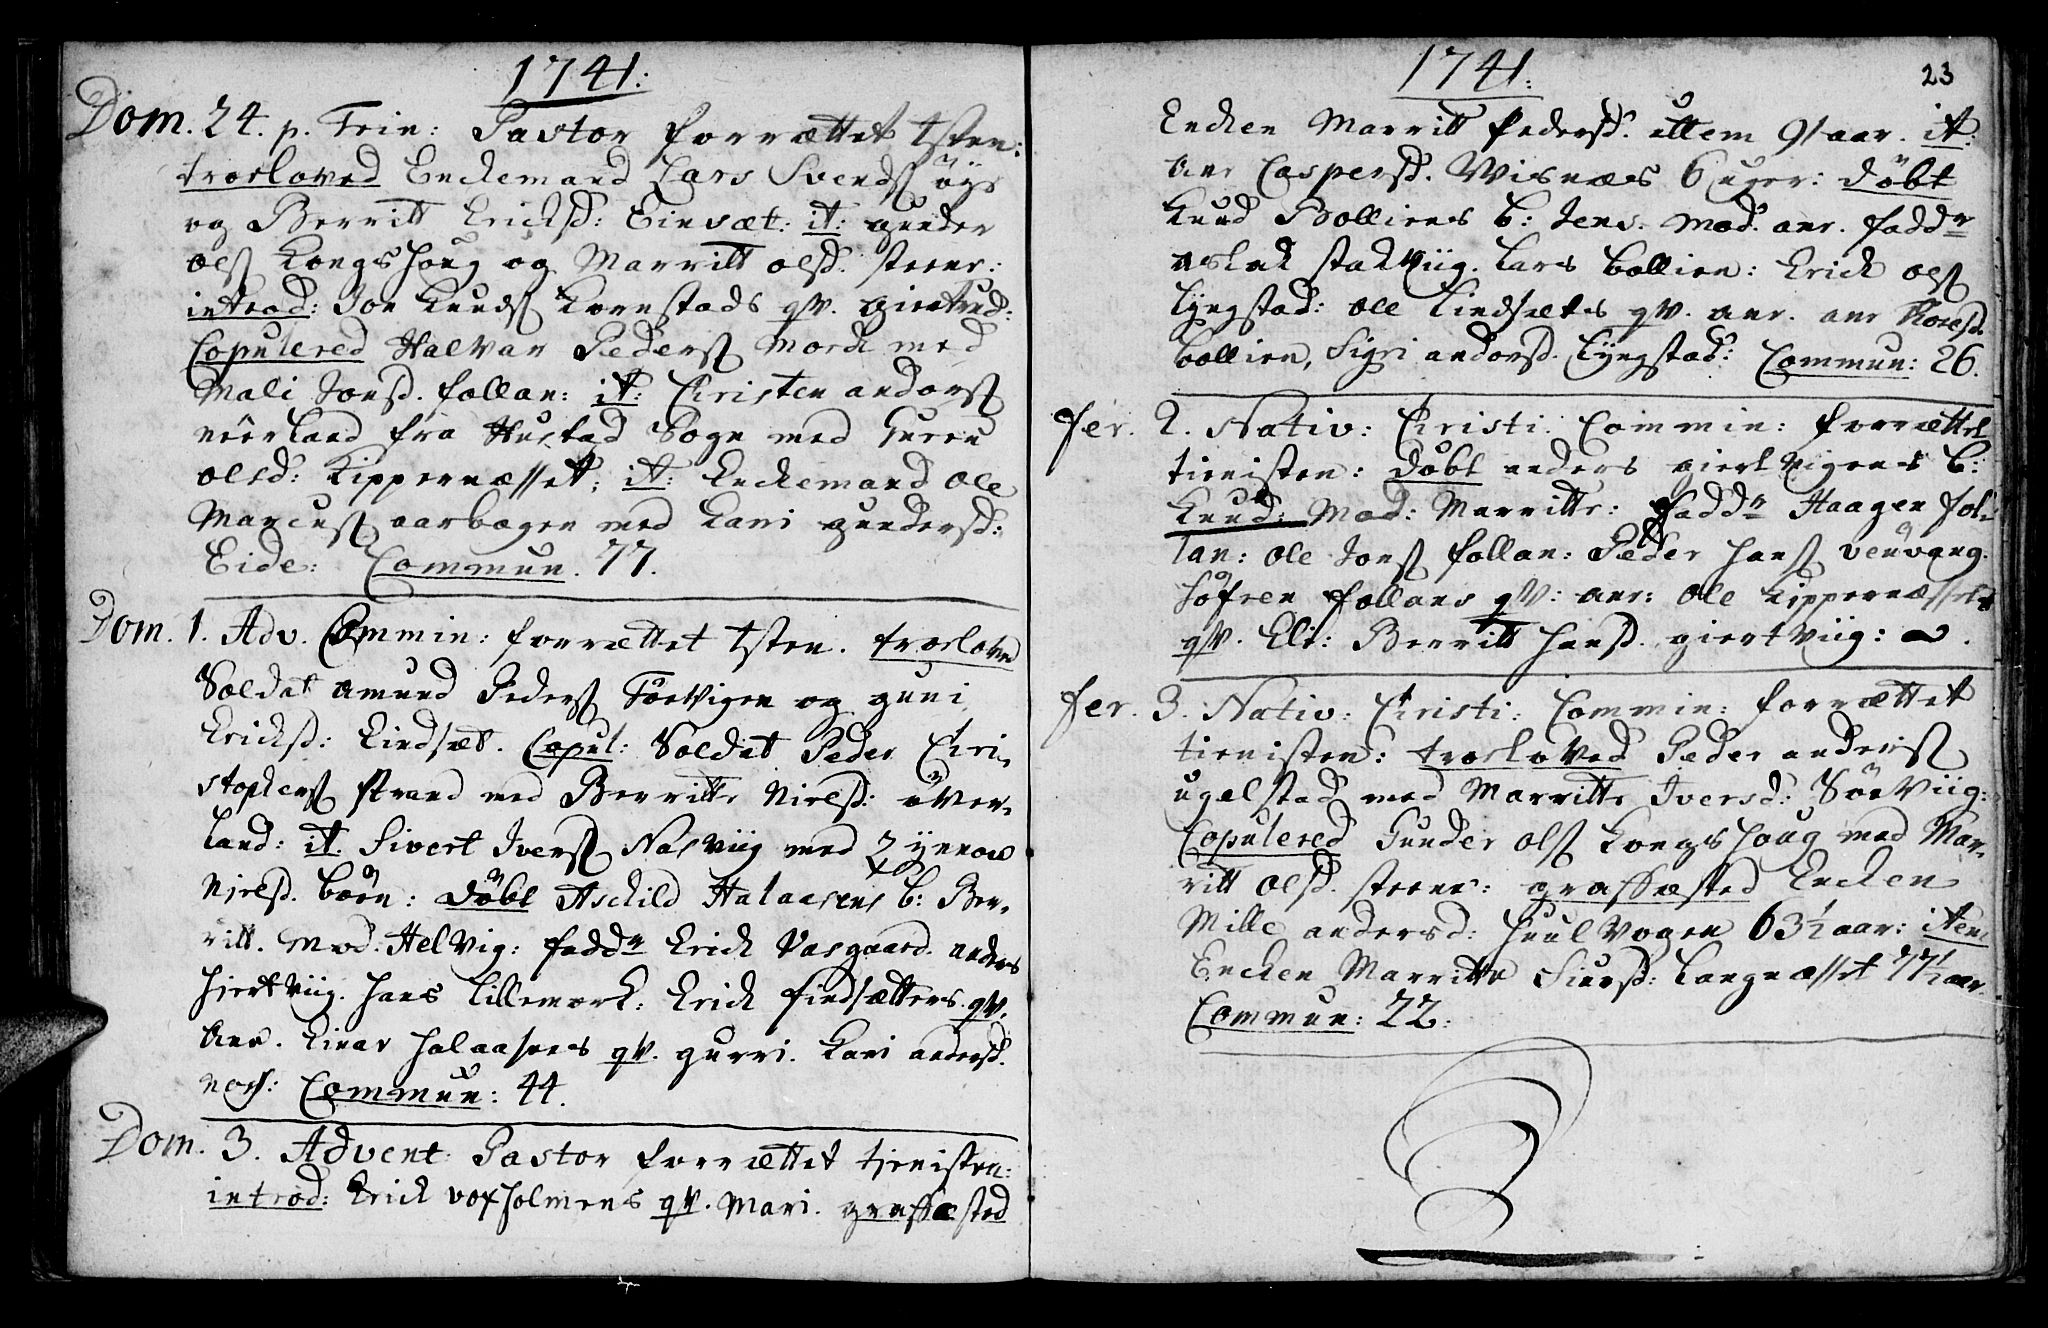 1741:
Dom. 24. p. Trin: Pastor forrættet tsten:
troeloved Enckemand Lars Svends øÿe
og Berritt Ericksd: Einsæt: it: gunder
ols KongsHoug og Marritt olsd. steene:
introd: Joe Knuds Kornstads qv. giertrud:
Copulered Halvar Peders Mork med
Mali Jonsd. follan: it: Christen anders
neerland fra Hustad Sogn med Guren
olsd: Kippernæsset; it: Enckemand Ole
Marcus aarbogen med Kari gundersd:
Eide: Commun. 77.
Dom. 1. Adv. Commin: forrættet tsten. troeloved
Soldat Amund Peders Torvigen og guni
Ericksd: Lindsæt. Copul: Soldat Peder Chri-
stophers Strand med Berritte Nielsd: över-
land: it. Sivert Ivers Nasviig med
Nielsd. böen: döbt Aschild Halaasens b: Ber-
ritt. Mod: Helvig: fadd: Erick Vasgaard. anders
Hiertviig. Hans Lillemork: Erick findsætters qv.
Ane. Einar Halaasens qv. gurri. Kari andersd.
noss: Commun: 44.
Dom. 3. Advent: Pastor forrættet tienisten:
introd: Erick voxholmens qv. Mari. graffæsted
1741:
23
Encken Marritt Pedersd. ullem 91 aar. it.
Ane Caspersd. Visnæs 6 uger: döbt
Knud Bolliens b: Jens. mod. ane. fadd:
aslak stakviig. Lars bollien: Erick ols
Lÿngstad: ole Lindsæts qv. ane. ane Roesd.
bollien, Sigri andersd. Lÿngstad: Commun: 26.
fer. 2. Nativ: Christi: Commin: forrættet
tienisten: döbt anders giertvigens b:
Knud: Mod: Marritte: fadd: Haagen fol-
lan: ole Jons follan: Peder Hans venvang.
Söfren follans qv: ane: ole Kippernæssets
qv. Eli: Berritt Hansd. giertviig:
fer. 3. Nativ: Christi: Commin: forrættet
tienisten: troeloved Peder anders
ugelstad med Marritte Iversd: Sörviig:
Copulered Gunder ols KongsHoug med Mar-
ritt olsd. steene: graffæsted Encken
Mille andersd: Huulvogen 63½ aar: item
Encken Marritte Siursd: Langnæsset 77½ aar.
Commun: 22: